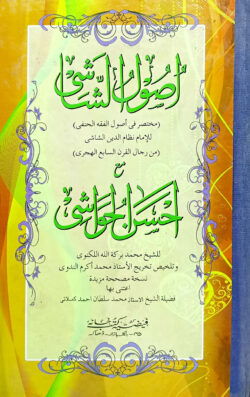 اُصُولُ الشَّاشِی
(مختصر فی أصول الفقه الحنفی)
للإمام نظام الدین الشاشی
(من رجال القرن السابع الهجری)
مع
احسن الحواشی
للشیخ محمد بركة الله اللکنوی
وتلخیص تخریج الأستاذ محمد أکرم الندوی
نسخة مصححة مزیدة
اعتنی بها
فضیلة الشیخ الاستاذ محمد سلطان احمد